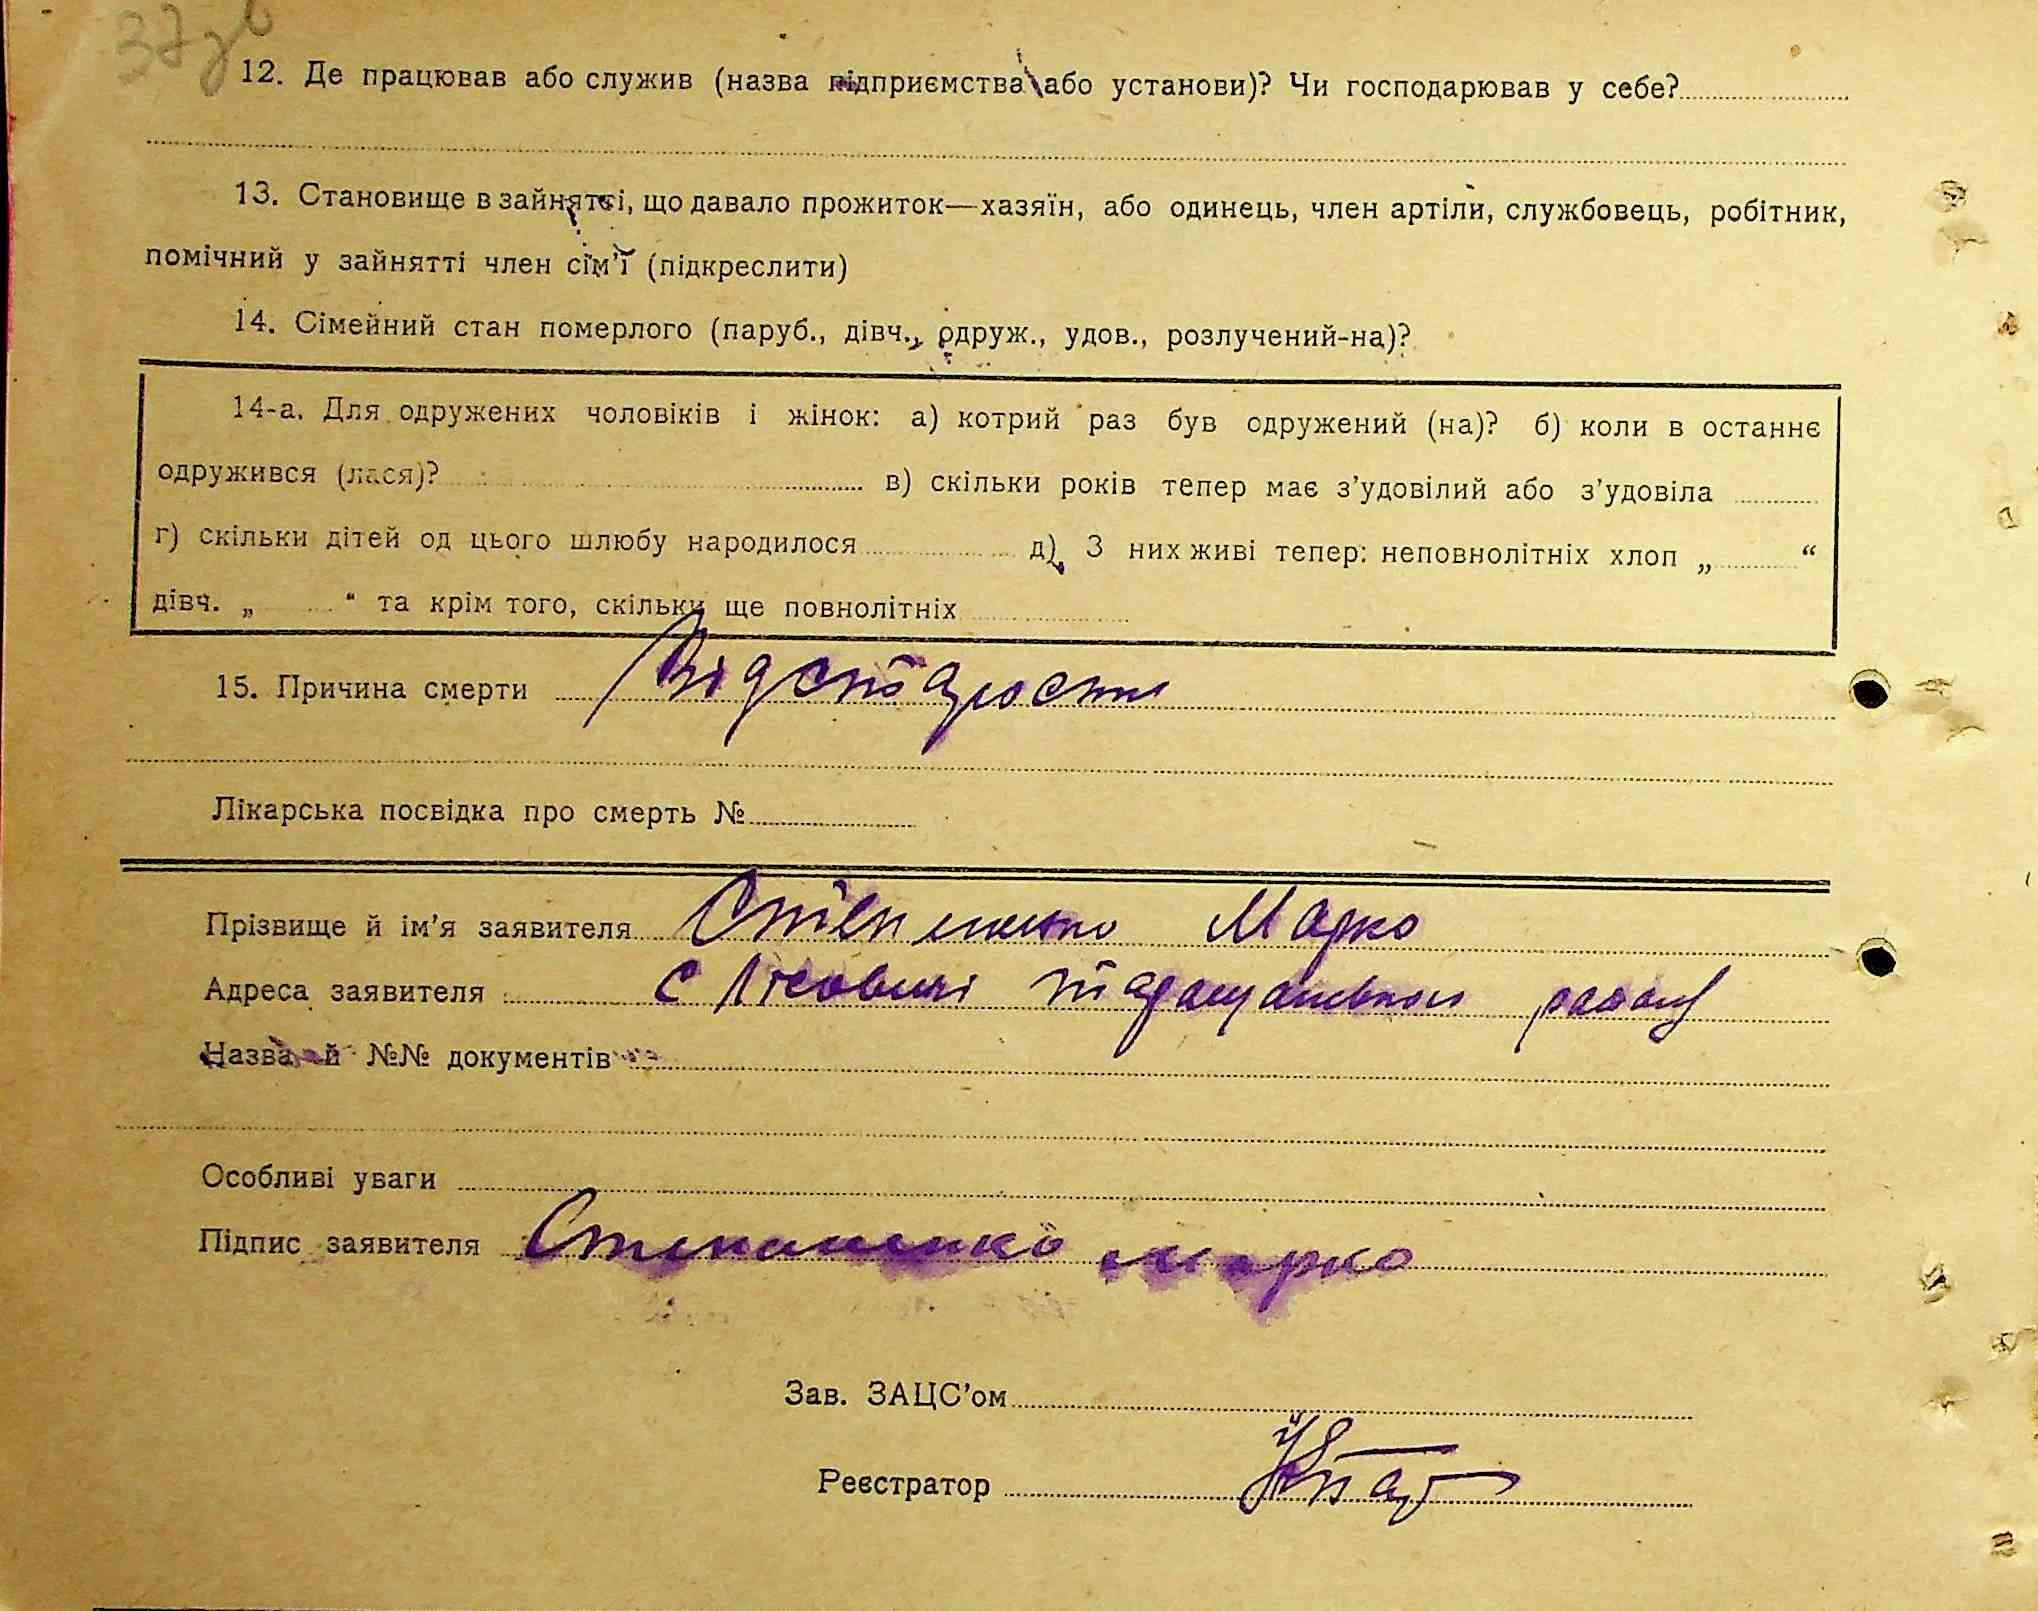 37зв
12. Де працював або служив (назва підприємства або установи)? Чи господарював у себе?
13. Становище в зайнятті, що давало прожиток—хазяїн, або одинець, член артіли, службовець, робітник,
помічний у зайнятті член сім’ї (підкреслити)
14. Сімейний стан померлого (паруб., дівч., одруж., удов., розлучений-на)?
14-а. Для одружених чоловіків і жінок: а) котрий раз був одружений (на)? б) коли в останнє
одружився (лася)? в) скільки років тепер має з’удовілий або з’удовіла
г) скільки дітей од цього шлюбу народилося д) З них живі тепер: неповнолітніх хлоп „ “
дівч. „ “ та крім того, скільки ще повнолітніх
15. Причина смерти Від старости
Лікарська посвідка про смерть №
Прізвище й ім’я заявителя Марко
Адреса заявителя с Лісовичі району
Назва й №№ документів
Особливі уваги
Підпис заявителя Степаненко Марко
Зав. ЗАЦС’ом
Реєстратор